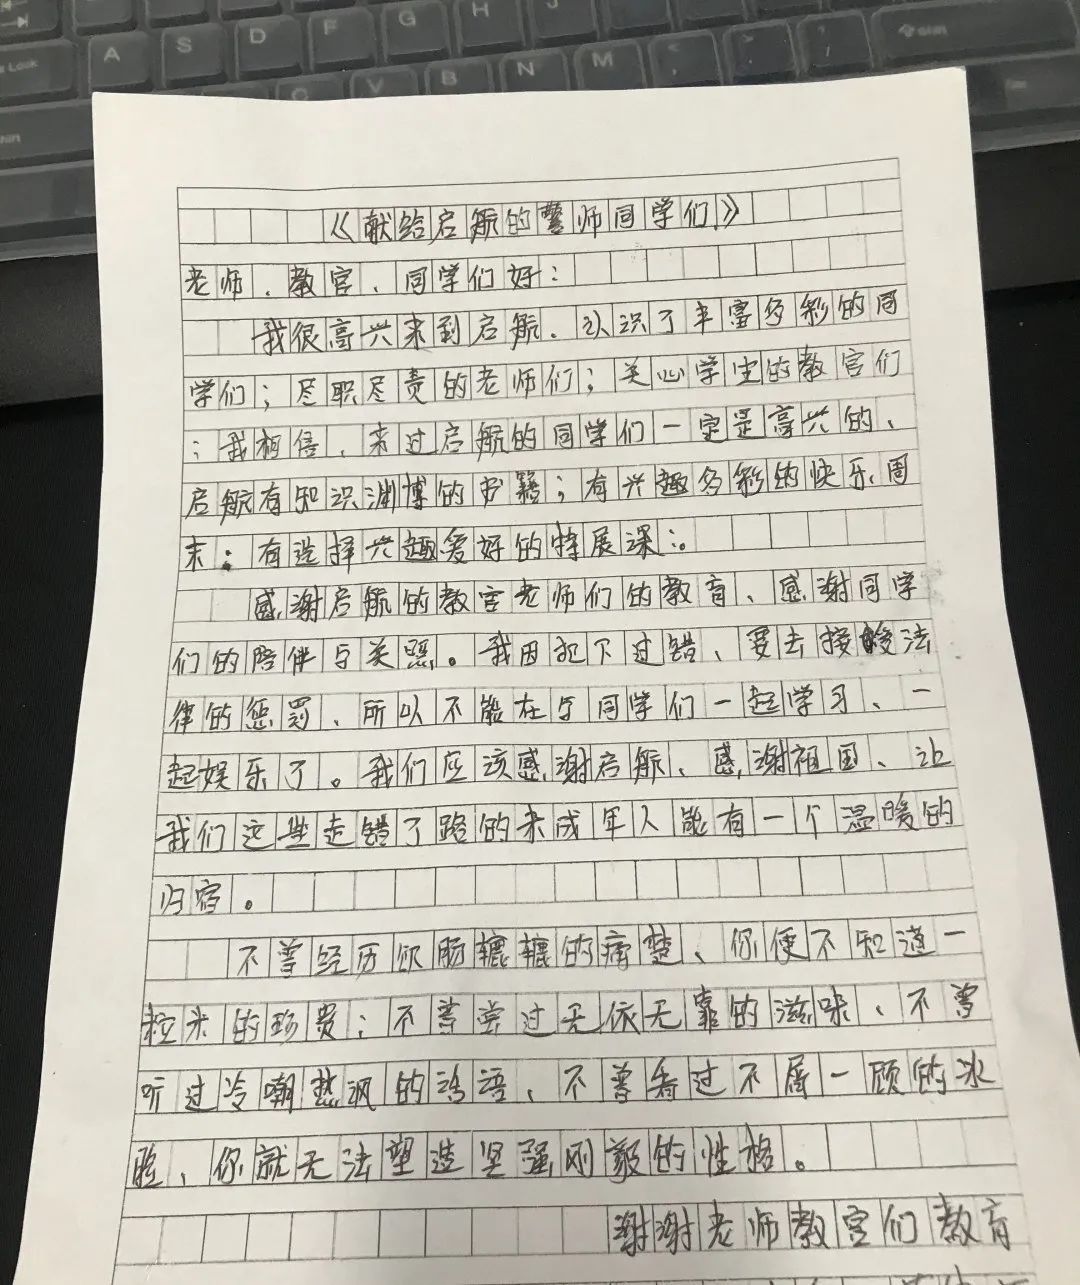 A S D F G H J
V B N M
《献给启航的警师同学们》
老师、教官、同学们好：
我很高兴来到启航、认识了丰富多彩的同
学们；尽职尽责的老师们；关心学生的教官们
；我相信、来过启航的同学们一定是高兴的、
启航有知识渊博的书籍；有兴趣多彩的快乐周
末；有选择兴趣爱好的特展课；。
感谢启航的教官老师们的教育、感谢同学
们的陪伴与关照。我因犯下过错、要去接受法
律的惩罚、所以不能在与同学们一起学习、一
起娱乐了。我们应该感谢启航、感谢祖国、让
我们这些走错了路的未成年人能有一个温暖的
归宿。
不曾经历饥肠辘辘的痛楚、你便不知道一
粒米的珍贵；不曾尝过无依无靠的滋味、不曾
听过冷嘲热讽的话语、不曾看过不屑一顾的冰
脸、你就无法塑造坚强刚毅的性格。
谢谢老师教官们教育